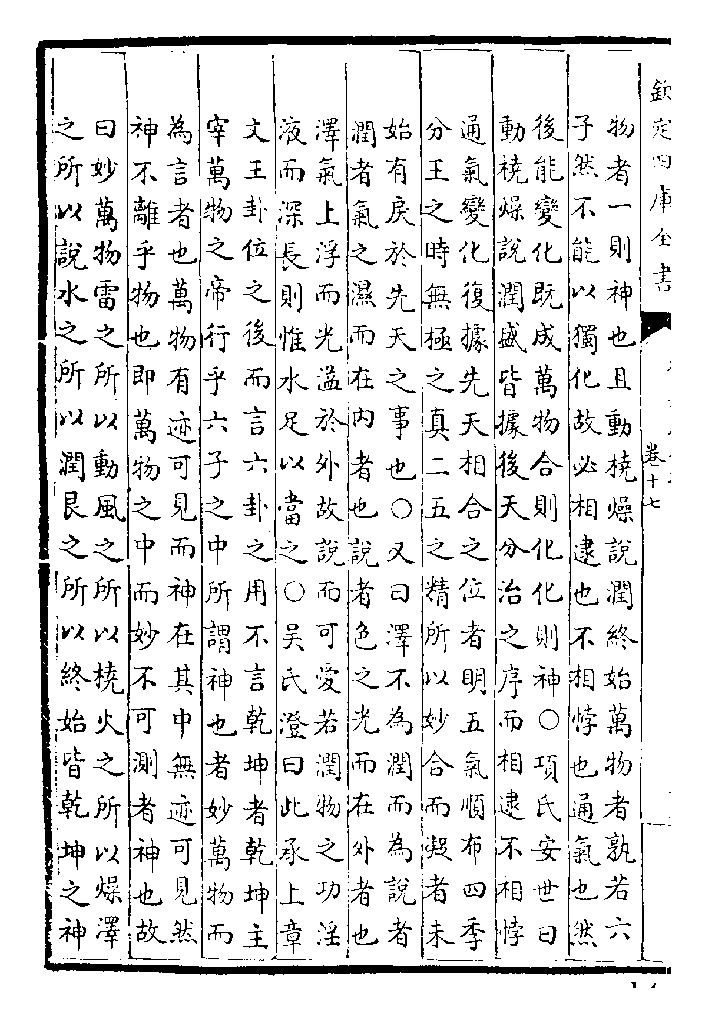 欽定四庫全書
卷十七
物者一則神也且動橈燥說潤終始萬物者孰若六
子然不能以獨化故必相逮也不相悖也通氣也然
後能變化既成萬物合則化化則神○項氏安世曰
動橈燥說潤盛皆據後天分治之序而相逮不相悖
通氣變化復據先天相合之位者明五氣順布四季
分王之時無極之真二五之精所以妙合而凝者未
始有戾於先天之事也○又曰澤不為潤而為說者
潤者氣之濕而在内者也說者色之光而在外者也
澤氣上浮而光溢於外故說而可愛若潤物之功淫
液而深長則惟水足以當之○吳氏澄曰此承上章
文王卦位之後而言六卦之用不言乾坤者乾坤主
宰萬物之帝行乎六子之中所謂神也者妙萬物而
為言者也萬物有迹可見而神在其中無迹可見然
神不離乎物也即萬物之中而妙不可測者神也故
曰妙萬物雷之所以動風之所以橈火之所以燥澤
之所以說水之所以潤艮之所以終始皆乾坤之神